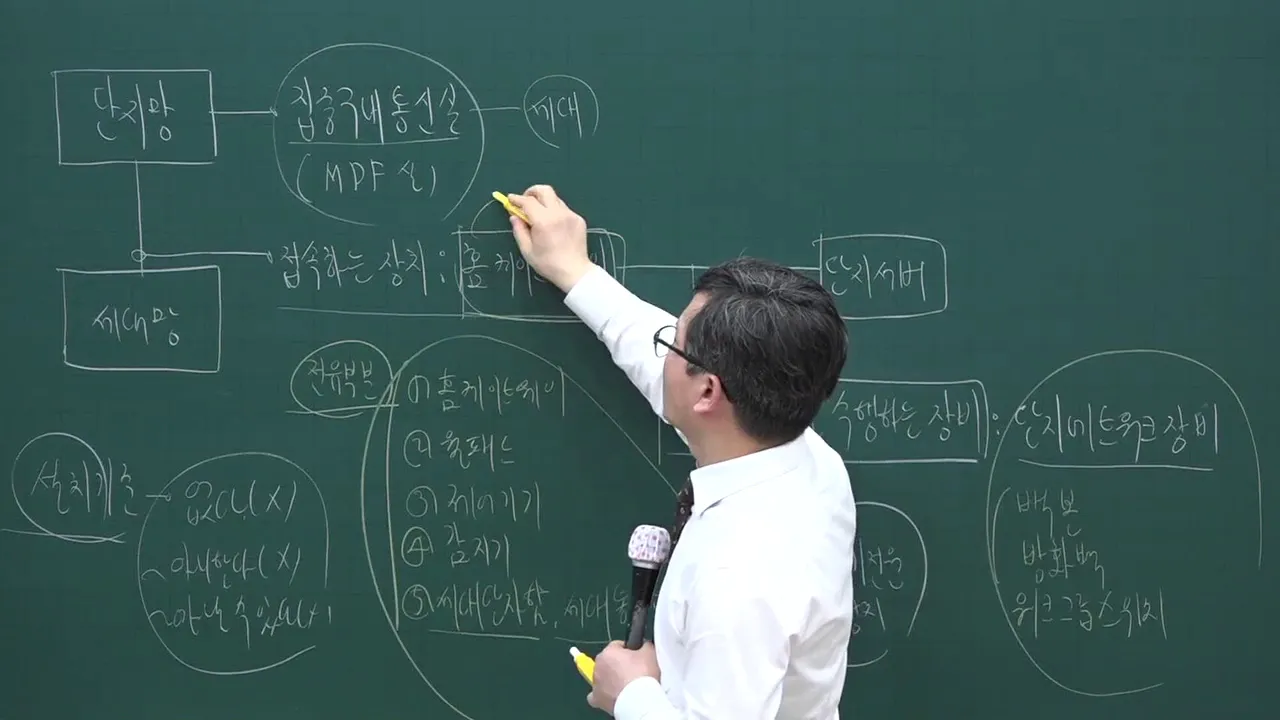 단지망
집중구내통신실
(MDF실)
세대
접속하는 장치 : 홈게이
단지서버
세대망
전유부분
① 홈게이트웨이
② 월패드
③ 제어기기
④ 감지기
⑤ 세대단자함, 세대통
수행하는 장비 : 단지네트워크장비
백본
방화벽
워크그룹스위치
설치기준
없다(X)
~아니한다(X)
~아닐 수 있다(X)
전원
장치